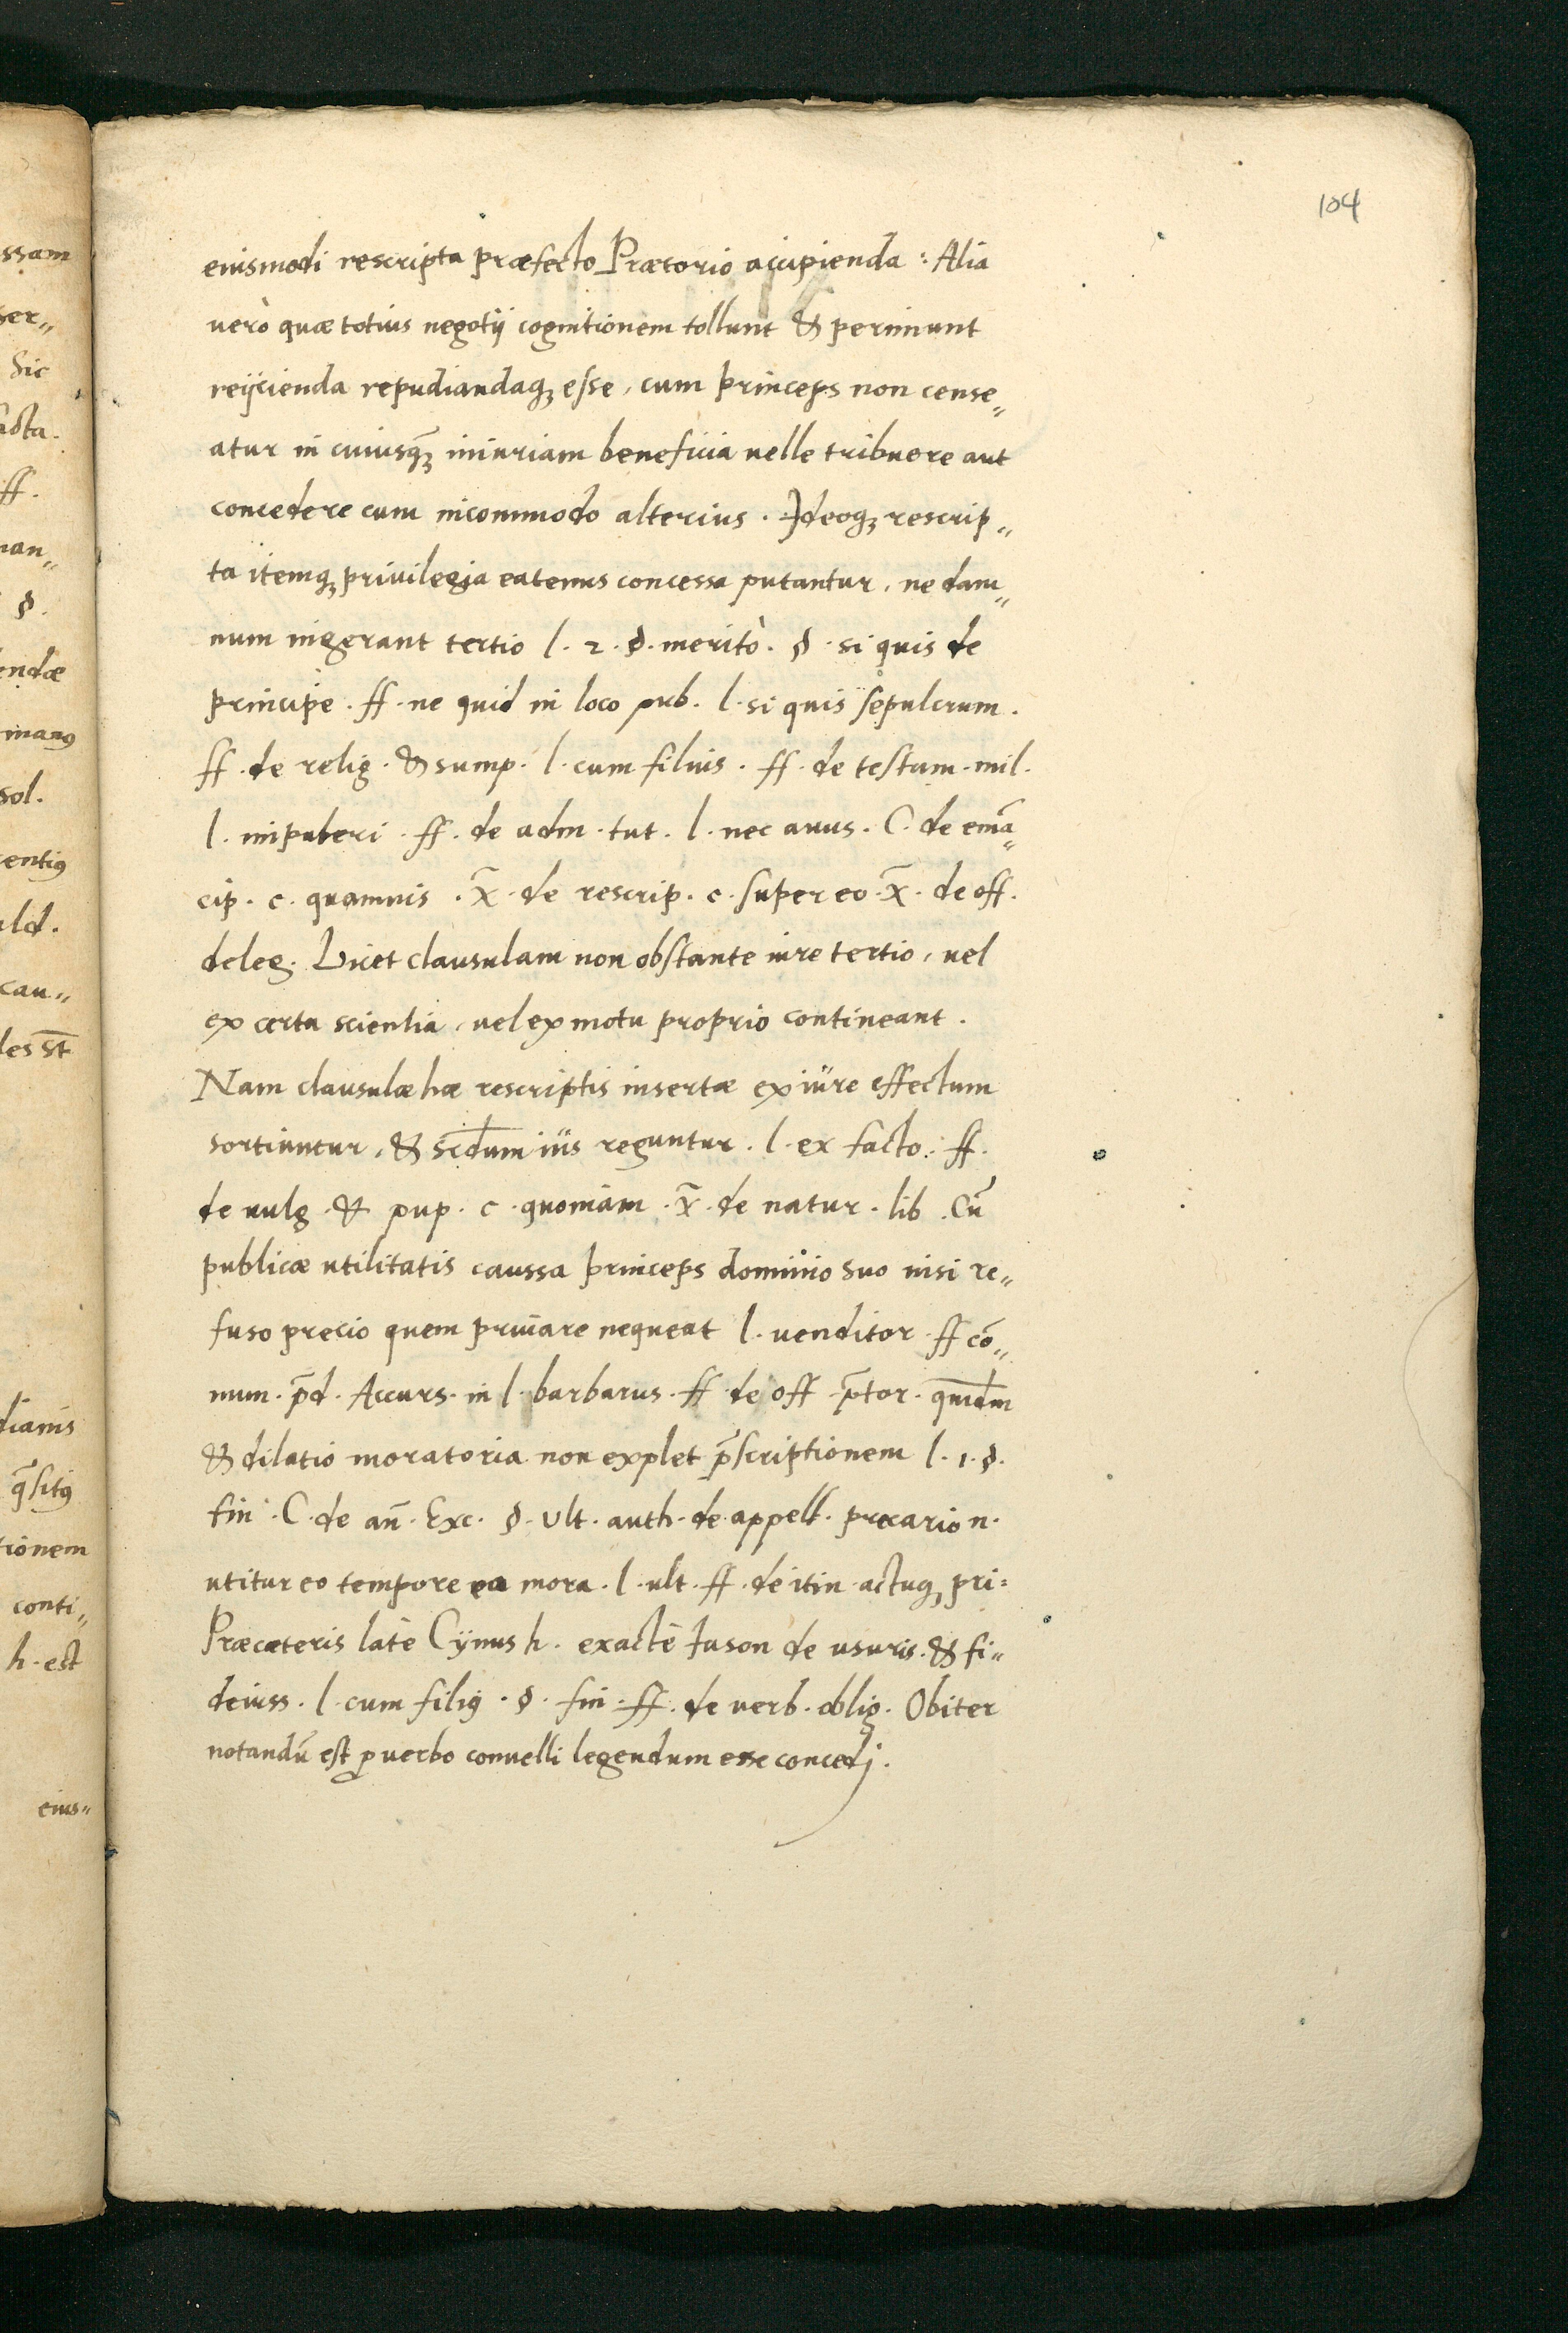 104
eiusmodi rescripta præfecto Prætorio accipienda : Alia
uerò quæ totius negotij cognitionem tollunt & perimunt
reijcienda repudiandaq; esse, cum princeps non cense„
atur in cuiusq̃; iniuriam beneficia uelle tribuere aut
concedere cum incommodo alterius . Ideoq; rescrip„
ta itemq; priuilegia eatenus concessa putantur, ne dam„
num ingerant tertio l. 2. §. meritò. § si quis de
principe . ff. ne quid in loco pub. l. si quis sepulcrum.
ff. de relig. & sump. l. cum filius . ff. de testam. mil.
l. impuberi . ff. de adm. tut. l. nec auus. C. de emã„
cip. c. quamuis . x̃. de rescrip. c. super eo . x̃. de off.
deleg. Licet clausulam non obstante iure tertio, uel
ex certa scientia, uel ex motu proprio contineant.
Nam clausulæ hæ rescriptis insertæ ex iure effectum
sortiuntur, & scd̄um ius reguntur. l. ex facto. ff.
de uulg. & pup. c. quoniam . x̃. de natur. lib. Cũ
publicæ utilitatis caussa princeps dominio suo nisi re„
fuso precio quem priuare nequeat l. uenditor ff cõ„
mun. p̃d. Accurs. in l. barbarus. ff de off p̃tor. quidm̃
& dilatio moratoria non explet p̃scriptionem l. 1. §.
fin. C. de añ. Exc. §. Ult. auth. de appell. precario n.
utitur eo tempore ea mora. l. ult. ff. de itin actuq; pri:
Præcæteris latè Cynus h. exactè Iason de usuris. & fi„
deiuss. l. cum filiꝰ. §. fin. ff. de uerb. oblig. Obiter
notandũ est ꝓ uerbo conuelli legendum esse concedj.
ssam
ser„
sic
acta.
ff.
man„
§.
endæ
manꝰ
sol.
entiꝰ
uld.
cau„
les st̃
dianis
q̃sitꝰ
tionem
conti„
h. est
eius„